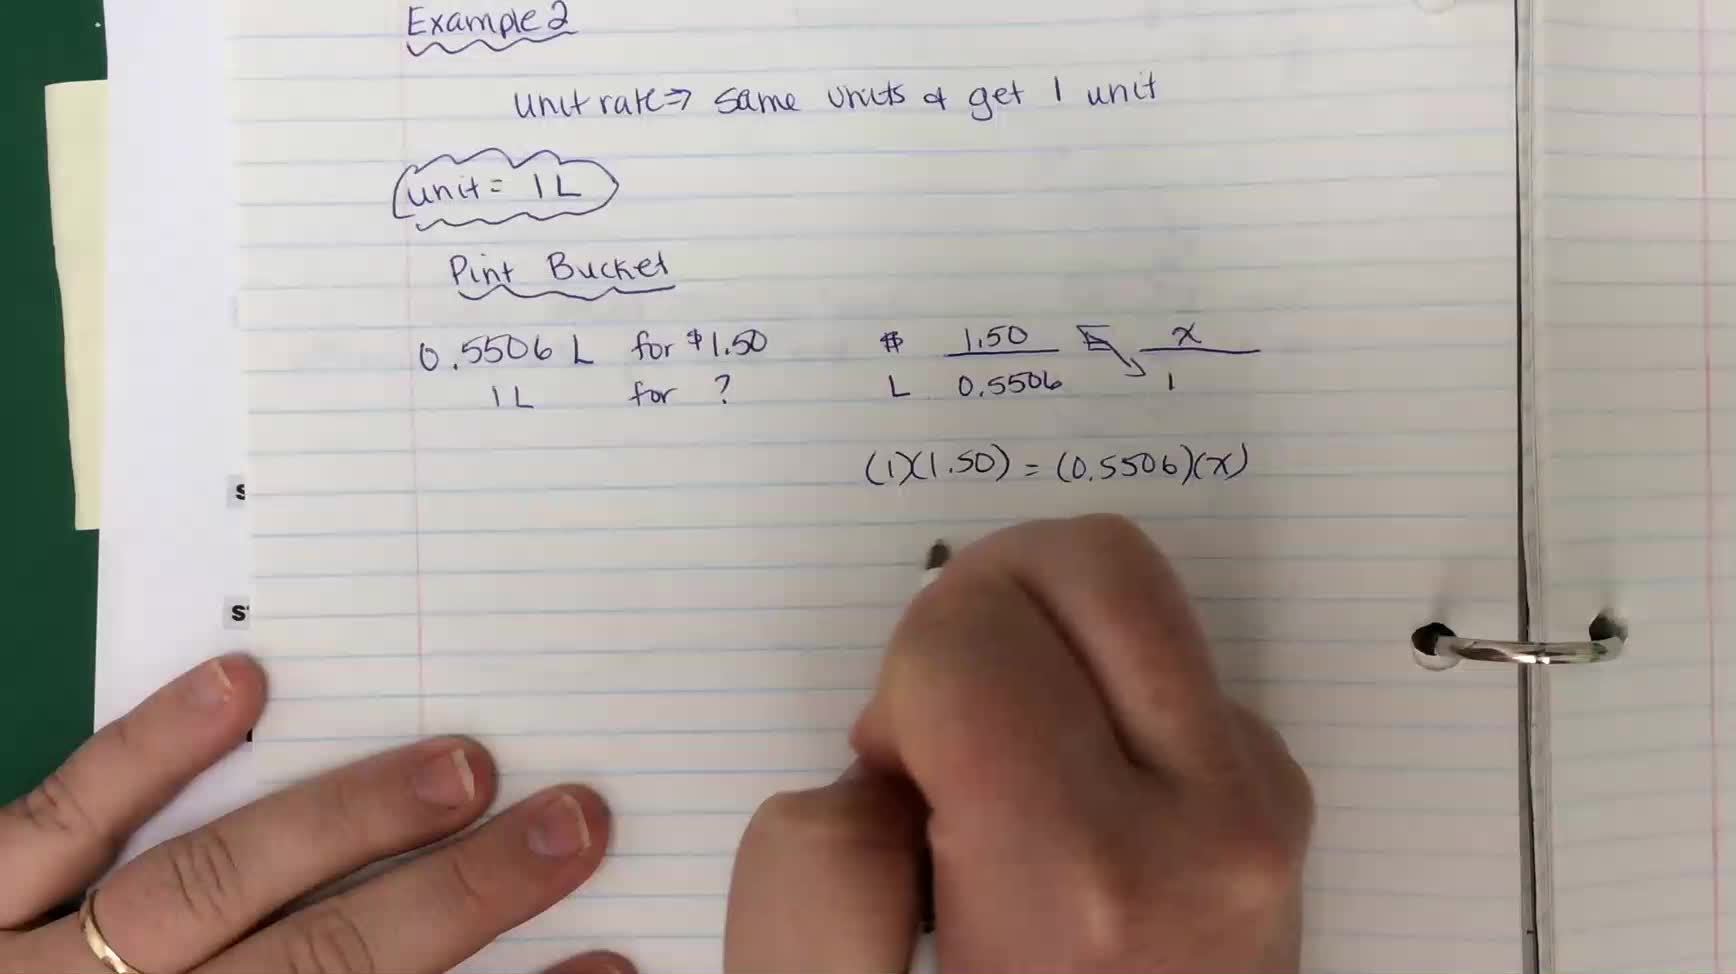 Example 2
Unit rate ⇒ same units & get 1 unit
unit = 1 L
Pint Bucket
0.5506 L for $1.50
1 L for ?
$ 1.50 = x
L 0.5506 1
(1)(1.50) = (0.5506)(x)